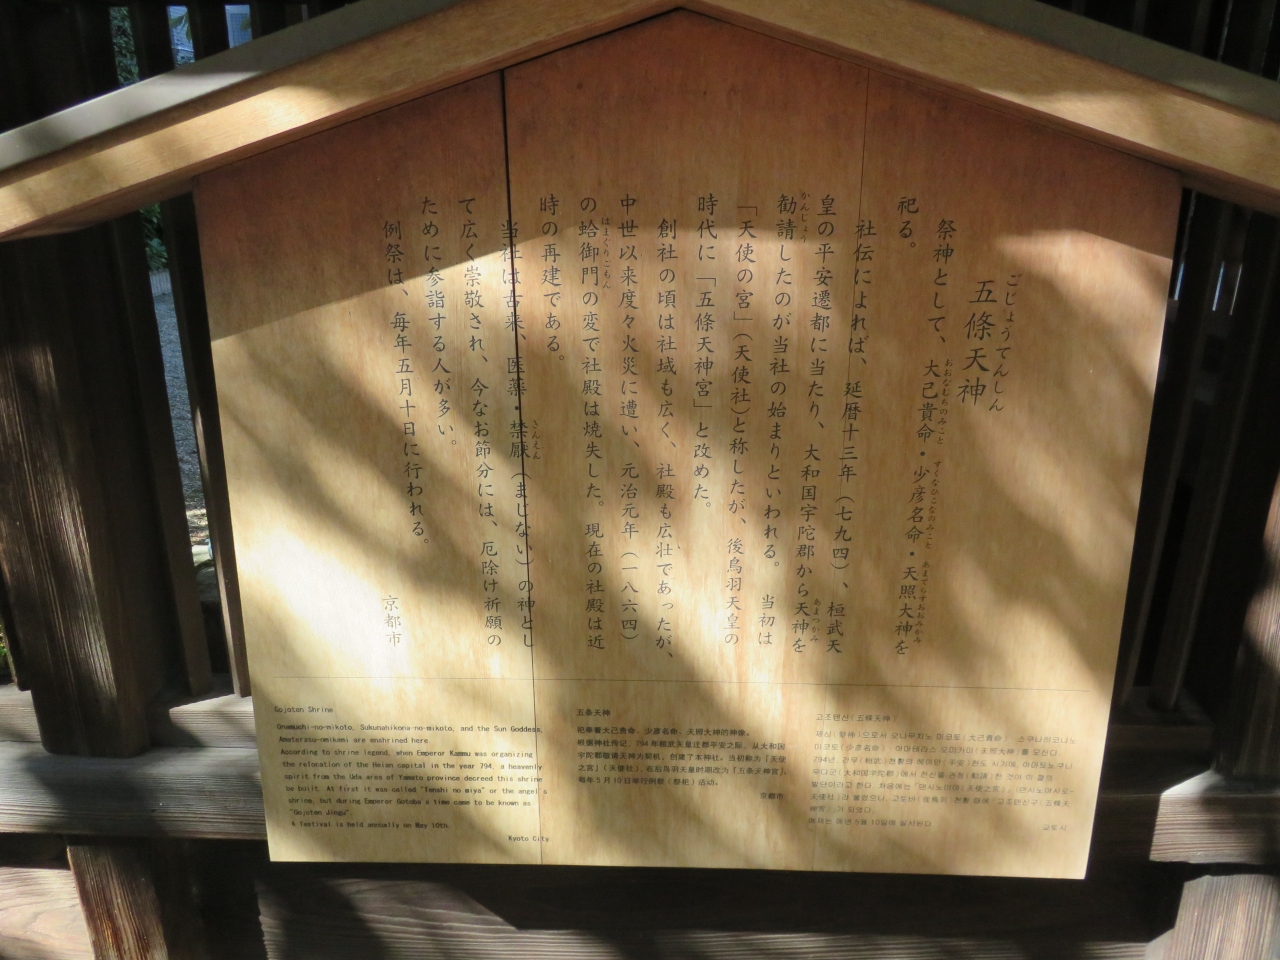 五條天神
ごじょうてんしん
祭神として、大己貴命・少彦名命・天照大神を
おおなむちのみこと すくなひこなのみこと あまてらすおおみかみ
祀る。
社伝によれば、延暦十三年(七九四)、桓武天
皇の平安遷都に当たり、大和国宇陀郡から天神を
あまつかみ
勧請したのが当社の始まりといわれる。当初は
かんじょう
「天使の宮」(天使社)と称したが、後鳥羽天皇の
時代に「五條天神宮」と改めた。
創社の頃は社域も広く、社殿も広壮であったが、
中世以来度々火災に遭い、元治元年(一八六四)
の蛤御門の変で社殿は焼失した。現在の社殿は近
はまぐりごもん
時の再建である。
当社は古来、医薬・禁厭(まじない)の神とし
きんえん
て広く崇敬され、今なお節分には、厄除け祈願の
ために参詣する人が多い。
例祭は、毎年五月十日に行われる。
京都市
Gojoten Shrine
Onamuchi-no-mikoto, Sukunahikona-no-mikoto, and the Sun Goddess,
Amaterasu-omikami are enshrined here.
According to shrine legend, when Emperor Kammu was organizing
the relocation of the Heian capital in the year 794, a heavenly
spirit from the Uda area of Yamato province decreed this shrine
be built. At first it was called "Tenshi no miya" or the angel's
shrine, but during Emperor Gotoba's time came to be known as
"Gojoten Jingu"
A festival is held annually on May 10th.
Kyoto City
五条天神
祀奉着大己贵命、少彦名命、天照大神的神像。
根据神社传记,794年桓武天皇迁都平安之际,从大和国
宇陀郡敬请天神为契机,创建了本神社。当初称为「天使
之宫」(天使社),在后鸟羽天皇时期改为「五条天神宫」。
每年5月10日举行例祭(祭祀)活动。
京都市
고조텐신(五條天神)
제신(祭神)으로서 오나무치노 미코토(大己貴命)、스쿠나히코나노
미코토(少彦名命)、아마테라스 오미카미(天照大神)를 모신다.
교토시